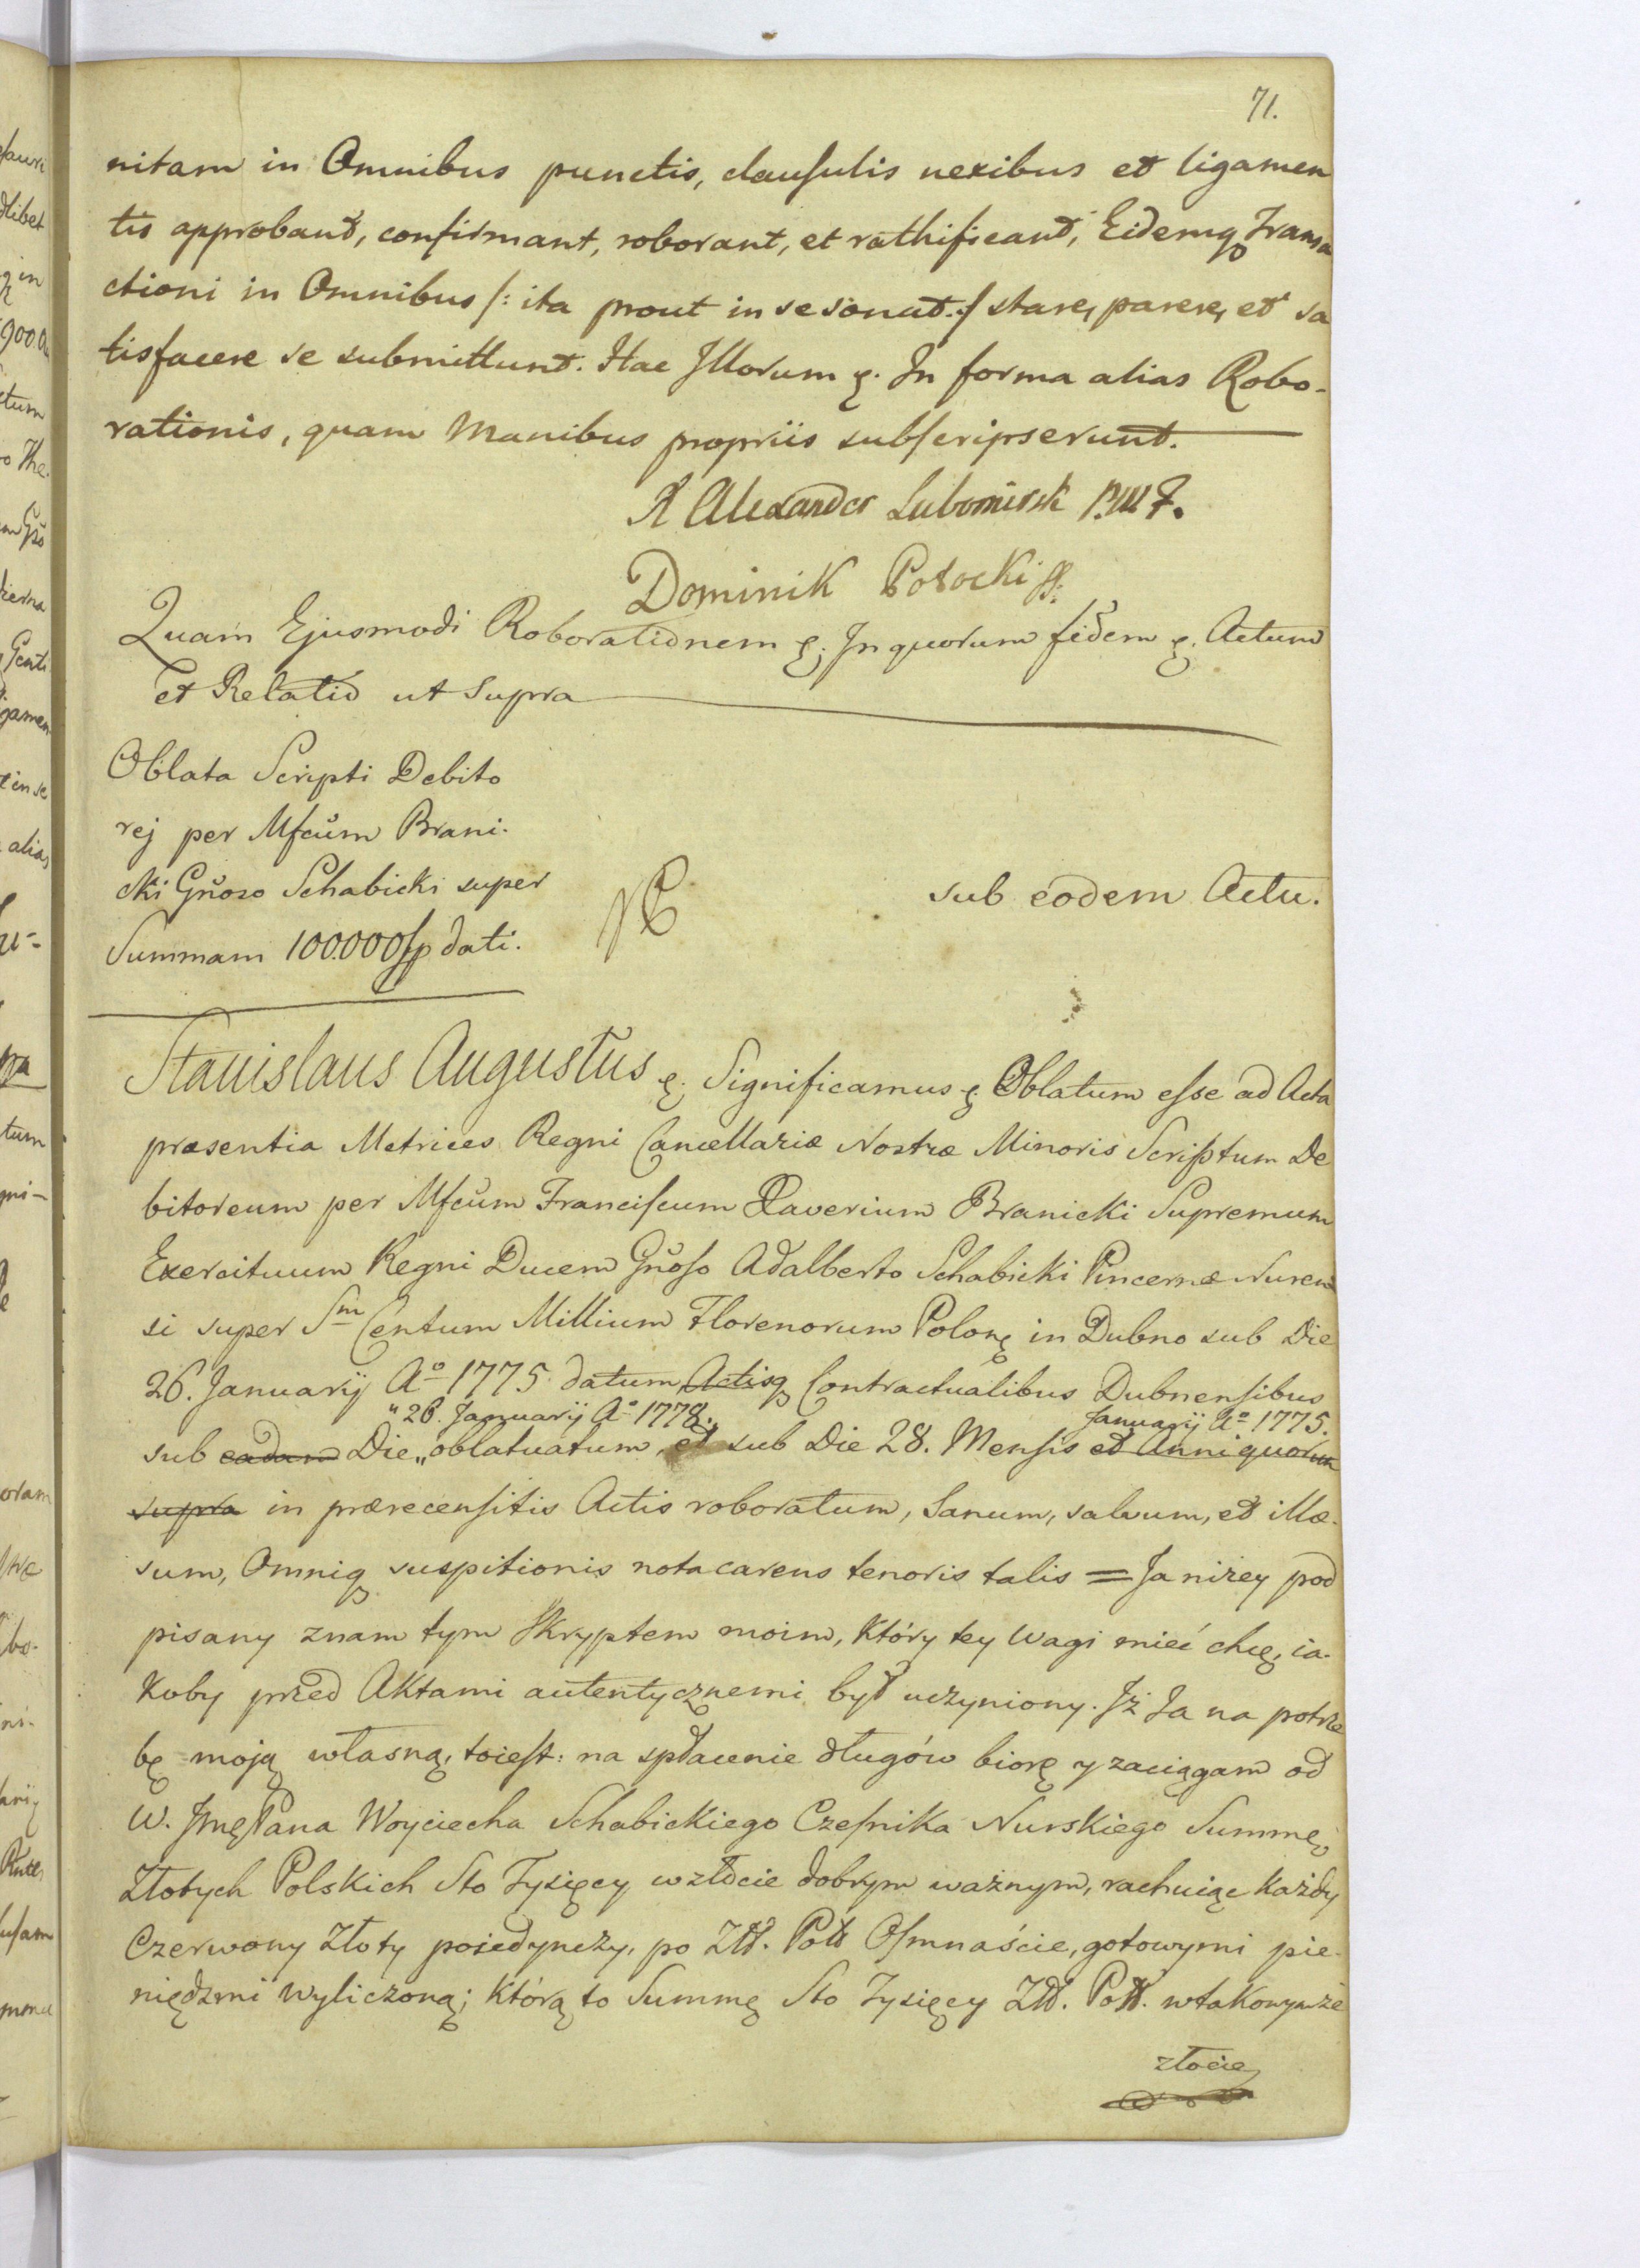 71.
nitam in Omnibus punctis, clausulis nexibus et ligamen
tis approbant, confirmant, roborant, et rathificant, Eidemq Transa
ctioni in Omnibus /: ita prout in se sonat :/ stare, parere, et sa
tisfacere se submittunt. Hac Illorum &. In forma alias Robo-
rationis, quam Manibus propriis subscripserunt.
A Alexander Lubomirsk
Dominik Potocki
Quam Ejusmodi Roborationem &. In quorum fidem &. Actum
et Relatio ut Supra
Oblata Scripti Debito
rej per Mfcum Brani-
cki Gnoso Schabicki super
Summam 100.000 fp dati.
sub eodem Actu.
Stanislaus Augustus &. Significamus &. Oblatum esse ad Acta
præsentia Metrices Regni Cancellariæ Nostræ Minoris Scriptum De
bitoreum per Mfcum Franciscum Xaverium Branicki Supremum
Exercituum Regni Ducem Gnoso Adalberto Schabicki Pincernæ Nuren
si super Sm Centum Millium Florenorum Polon in Dubno sub Die
26. Januarij Ao 1775. datum Actisq Contractualibus Dubnensibus
" 26. Januarij Ao 1778. Januarij Ao 1775.
sub eadem Die " oblatuatum, et sub Die 28. Mensis et Anni quorum
supra in prærecensitis Actis roboratum, Sanum, salvum, et illæ-
sum, Omniq suspitionis nota carens tenoris talis = Ja niżey pod
pisany znam tym Skryptem moim, który tey wagi mieć chcę, ia-
koby przed Aktami autentycznemi był uczyniony. Iż Ja na potrze
bę moją własną, toiest: na spłacenie długów biorę y zaciągam od
W. Jmę Pana Woyciecha Schabickiego Cześnika Nurskiego Summę
Złotych Polskich Sto Tysięcy w złocie dobrym ważnym, rachuiąc każdy
Czerwony Złoty poiedynczy, po Złł. Poll Osmnaście, gotowymi pie-
niędzmi wyliczoną; którą to Summę Sto Tysięcy Złł. Poll. w takowymże
złocie